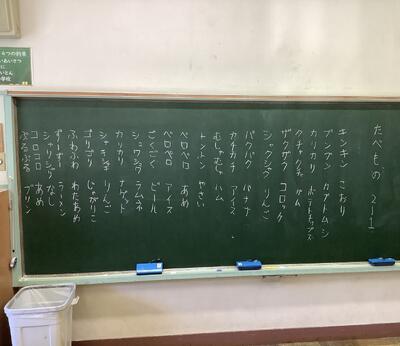 たべもの 2-1
キンキン こおり
カリカリ ポテトチップス
クチャクチャ ガム
ザクザク コロッケ
シャクシャク りんご
パクパク バナナ
カチカチ アイス
むしゃむしゃ ハム
トントン やさい
ペロペロ あめ
ペロペロ アイス
ごくごく ビール
シュワシュワ ラムネ
カリカリ ナゲット
シャキシャキ りんご
ゴリゴリ じゃがりこ
ふわふわ わたあめ
ずーずー ラーメン
シャリシャリ なし
コロコロ あめ
ぷるぷる プリン